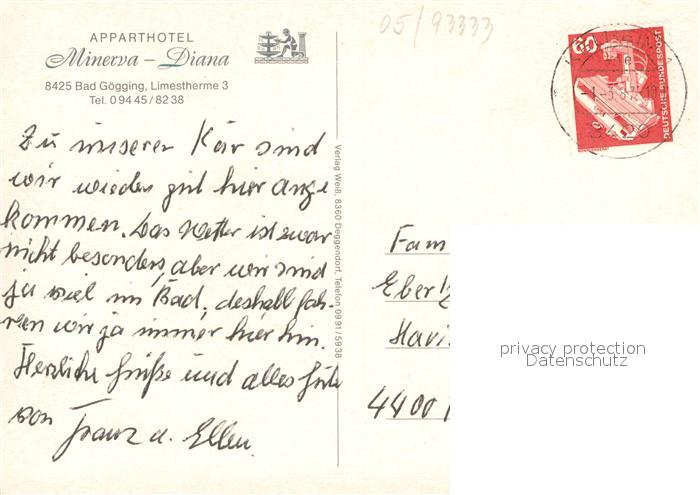 APPARTHOTEL
Minerva – Diana
8425 Bad Gögging, Limestherme 3
Tel. 0 94 45 / 82 38
Zu unserer Kur sind
wir wieder gut hier ange
kommen. Das Wetter ist zwar
nicht besonders, aber wir sind
ja viel im Bad, deshalb fah-
ren wir ja immer hier hin.
Herzliche Grüße und alles Gute
von Franz u. Ellen.
Verlag Weiß, 8360 Deggendorf, Telefon 09 91 / 59 38
05/93333
60
DEUTSCHE BUNDESPOST
Fam
Havi
4400
privacy protection
Datenschutz